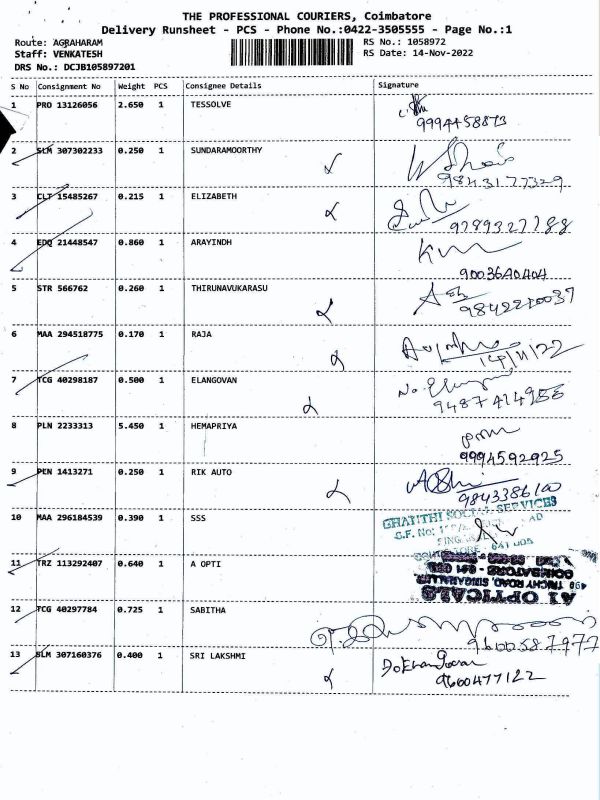 THE PROFESSIONAL COURIERS, Coimbatore
Delivery Runsheet - PCS - Phone No.:0422-3505555 - Page No.:1
Route: AGRAHARAM RS No.: 1058972
Staff: VENKATESH RS Date: 14-Nov-2022
DRS No.: DCJB105897201
S No Consignment No Weight PCS Consignee Details Signature
1 PRO 13126056 2.650 1 TESSOLVE
2 SLM 307302233 0.250 1 SUNDARAMOORTHY
9843177329
3 CLT 15485267 0.215 1 ELIZABETH
9789327788
4 EDQ 21448547 0.860 1 ARAYINDH
9003640404
5 STR 566762 0.260 1 THIRUNAVUKARASU
9842270037
6 MAA 294518775 0.170 1 RAJA
14/11/22
7 TCG 40298187 0.500 1 ELANGOVAN
9487414956
8 PLN 2233313 5.450 1 HEMAPRIYA
9994592925
9 PEN 1413271 0.250 1 RIK AUTO
9843386100
10 MAA 296184539 0.390 1 SSS
SOCIAL SERVICES
11 TRZ 113292407 0.640 1 A OPTI
A1 OPTICALS
TRICHY ROAD, SINGANALLUR
COIMBATORE - 641 005
12 TCG 40297784 0.725 1 SABITHA
9600587977
13 SLM 307160376 0.400 1 SRI LAKSHMI
9600477122